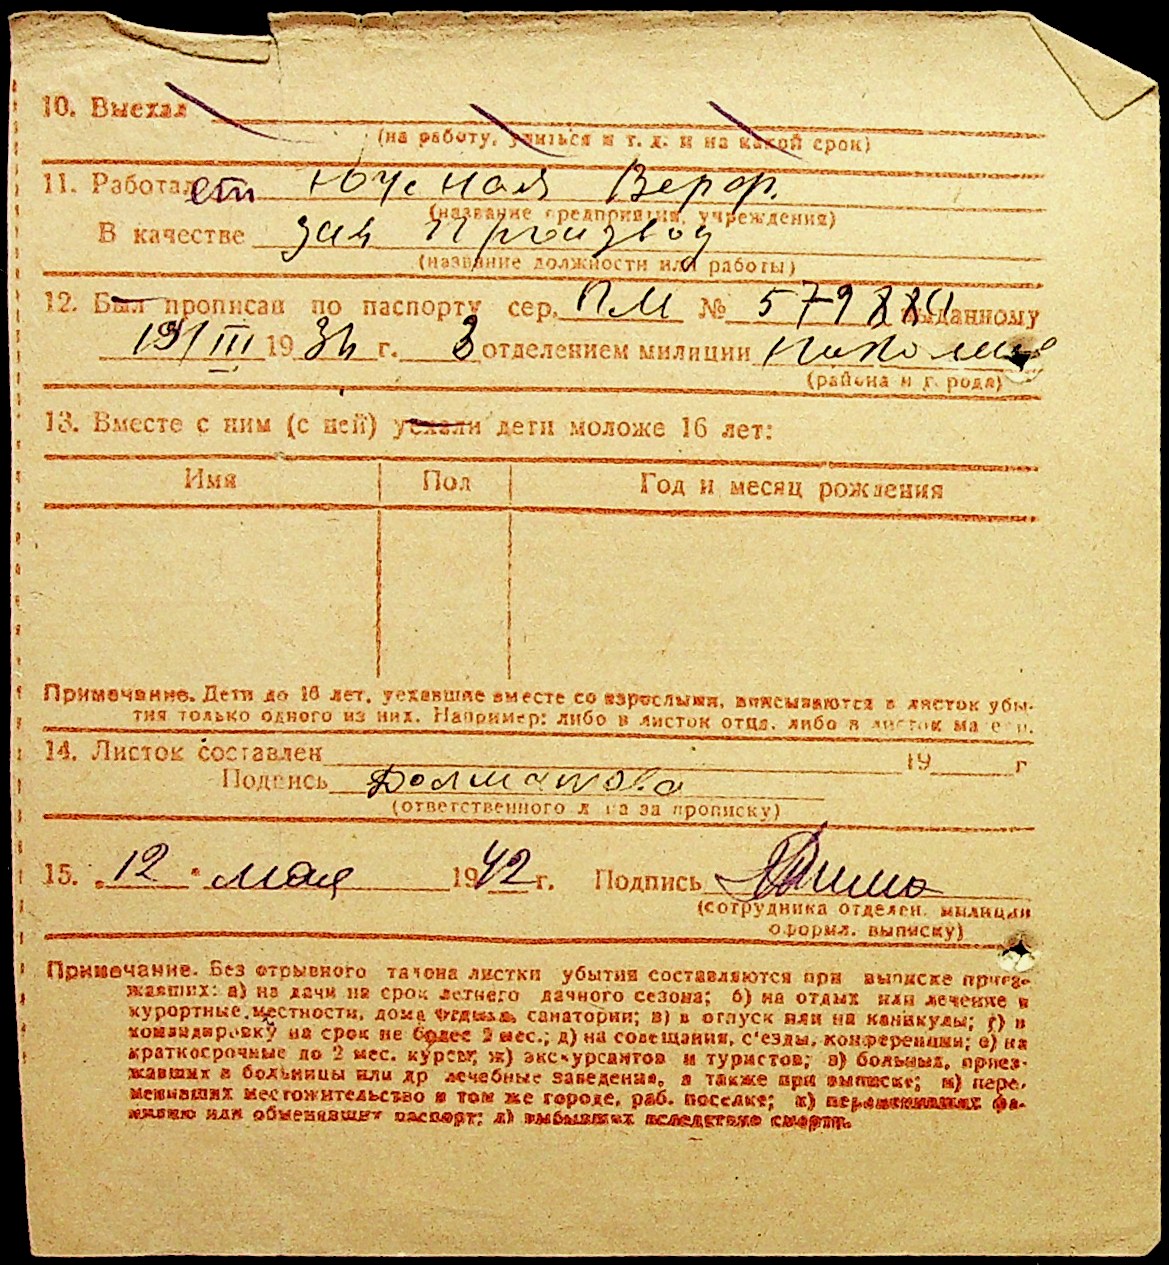 10. Выехал
(на работу, учиться и т. д. и на какой срок)
11. Работает Южная Верф.
(название предприятия, учреждения)
В качестве зав производ
(название должности или работы)
12. Был прописан по паспорту сер. ПМ № 579 выданному
19/III 19 г. 3 отделением милиции
(района и города)
13. Вместе с ним (с ней) уехали дети моложе 16 лет:
Имя Пол Год и месяц рождения
Примечание. Дети до 16 лет, уехавшие вместе со взрослыми, вписываются в листок убы-
тия только одного из них. Например: либо в листок отца, либо в листок матери.
14. Листок составлен 19 г
Подпись Долматова
(ответственного лица за прописку)
15. „12" мая 1942 г. Подпись
(сотрудника отделен. милиции
оформл. выписку)
Примечание. Без отрывного талона листки убытия составляются при выписке приез-
жавших: а) на дачи на срок летнего дачного сезона; б) на отдых или лечение в
курортные местности, дома отдыха, санатории; в) в отпуск или на каникулы; г) в
командировку на срок не более 2 мес.; д) на совещания, с'езды, конференции; е) на
краткосрочные до 2 мес. курсы; ж) экскурсантов и туристов; з) больных, приез-
жавших в больницы или др лечебные заведения, а также при выписке; и) пере-
менивших местожительство в том же городе, раб. поселке; к) переменивших фа-
милию или обменявших паспорт; л) выбывших вследствие смерти.